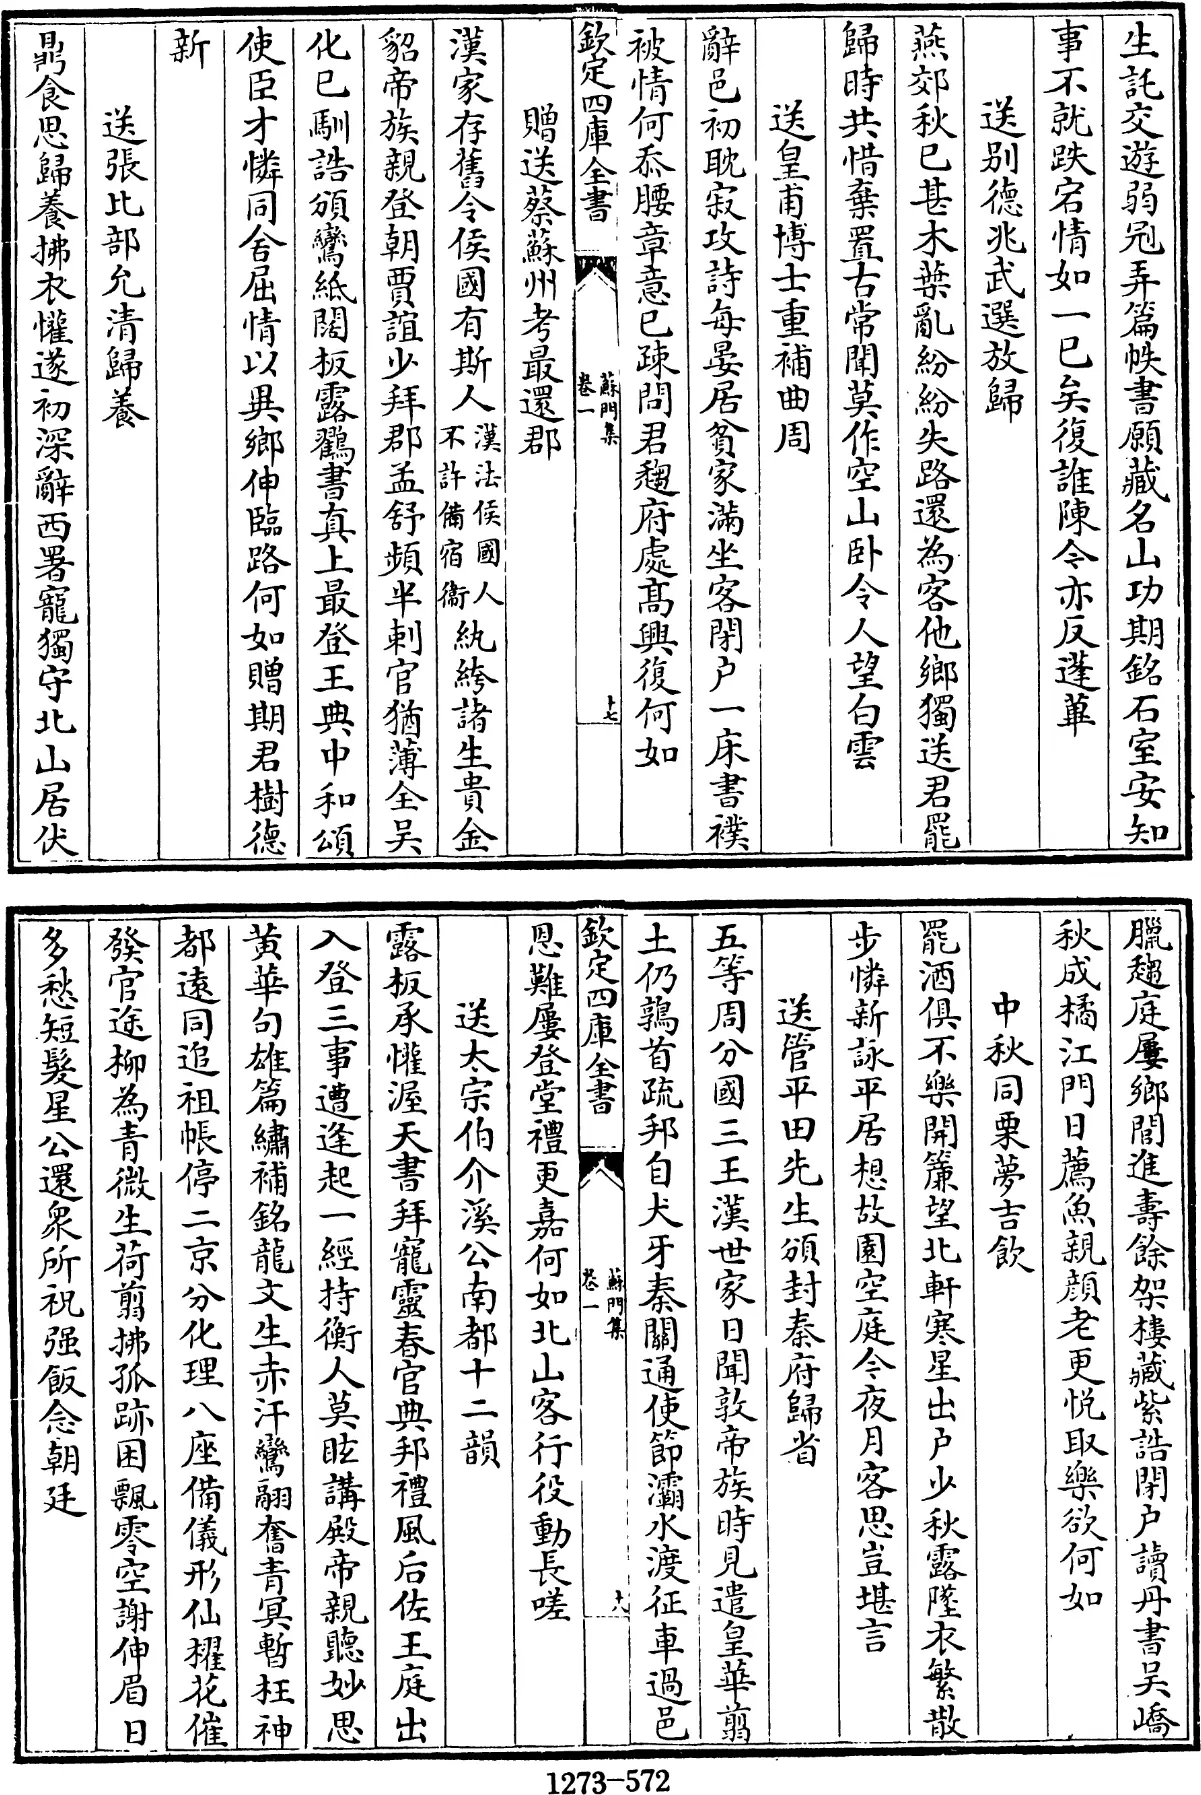 生託交遊弱冠弄篇帙書願藏名山功期銘石室安知
事不就跌宕情如一已矣復誰陳今亦反蓬蓽
送别德兆武選放歸
燕郊秋已甚木葉亂紛紛失路還為客他鄉獨送君罷
歸時共惜棄置古常聞莫作空山卧令人望白雲
送皇甫博士重補曲周
辭邑初耽寂攻詩每晏居貧家滿坐客閉户一床書襆
被情何忝腰章意已疎問君趨府處髙興復何如
欽定四庫全書
蘇門集
卷一
十七
贈送蔡蘇州考最還郡
漢家存舊令侯國有斯人漢法侯國人不許備宿衛紈絝諸生貴金
貂帝族親登朝賈誼少拜郡孟舒頻半剌官猶薄全吳
化已馴誥頒鸞紙闊扳露鵷書真上最登王典中和頌
使臣才憐同舍屈情以異鄉伸臨路何如贈期君樹德
新
送張比部允清歸養
鼎食思歸養拂衣懽遂初深辭西署寵獨守北山居伏
臘趨庭屢鄉閭進壽餘架樓藏紫誥閉户讀丹書吳嶠
秋成橘江門日薦魚親顔老更悦取樂欲何如
中秋同栗夢吉飲
罷酒俱不樂開簾望北軒寒星出户少秋露墜衣繁散
步憐新詠平居想故園空庭今夜月客思豈堪言
送管平田先生頒封秦府歸省
五等周分國三王漢世家日聞敦帝族時見遣皇華翦
土仍鶉首疏邦自犬牙秦關通使節灞水渡征車過邑
欽定四庫全書
蘇門集
卷一
十八
恩難屢登堂禮更嘉何如北山客行役動長嗟
送太宗伯介溪公南都十二韻
露板承懽渥天書拜寵靈春官典邦禮風后佐王庭出
入登三事遭逢起一經持衡人莫眩講殿帝親聽妙思
黄華句雄篇繡補銘龍文生赤汗鸞翮奮青冥暫枉神
都遠同追祖帳停二京分化理八座備儀形仙櫂花催
發官途柳為青微生荷翦拂孤跡困飄零空謝伸眉日
多愁短髮星公還衆所祝强飯念朝廷
1273-572